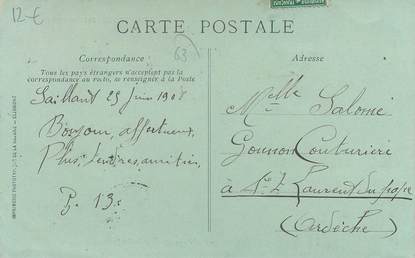 12-€
CARTE POSTALE
63
Correspondance
Tous les pays étrangers n'acceptent pas la
correspondance au recto, se renseigner à la Poste
Saillant 25 juin 1908
Bonjour, affectueux,
Plus tendres amitiés,
P. 13.
Adresse
Melle Salomé
Gounon Couturière
à St Laurent du pape
(Ardèche)